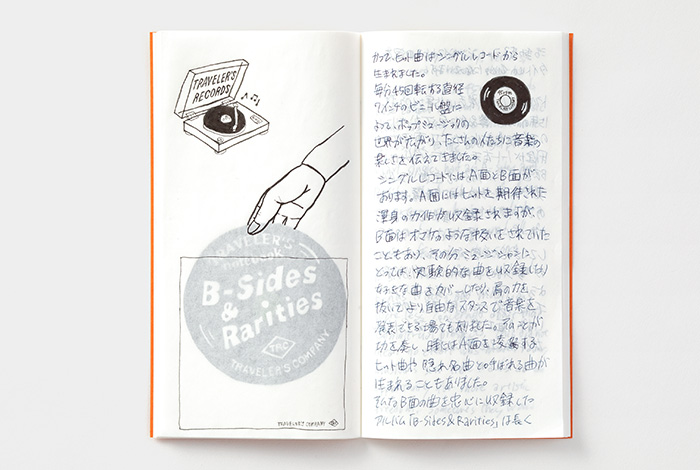 TRAVELER'S
RECORDS
TRAVELER'S
notebook
B-Sides
&
Rarities
TRC
TRAVELER'S COMPANY
TRAVELER'S COMPANY
かつて、ヒット曲はシングルレコードから
生まれました。
毎分45回転する直径
7インチのビニール盤に
よって、ポップミュージックの
世界が広がり、たくさんの人たちに音楽の
楽しさを伝えてきました。
シングルレコードにはA面とB面が
あります。A面にはヒットを期待された
渾身の力作が収録されますが、
B面はオマケのような扱いをされていた
こともあり、その分ミュージシャンに
とっては、実験的な曲を収録したり
好きな曲をカバーしたり、肩の力を
抜いてより自由なスタンスで音楽を
発表できる場でもありました。それが
功を奏し、時にはA面を凌駕する
ヒット曲や隠れ名曲と呼ばれる曲が
生まれることもありました。
そんなB面の曲を中心に収録した
アルバム「B-Sides & Rarities」は長く